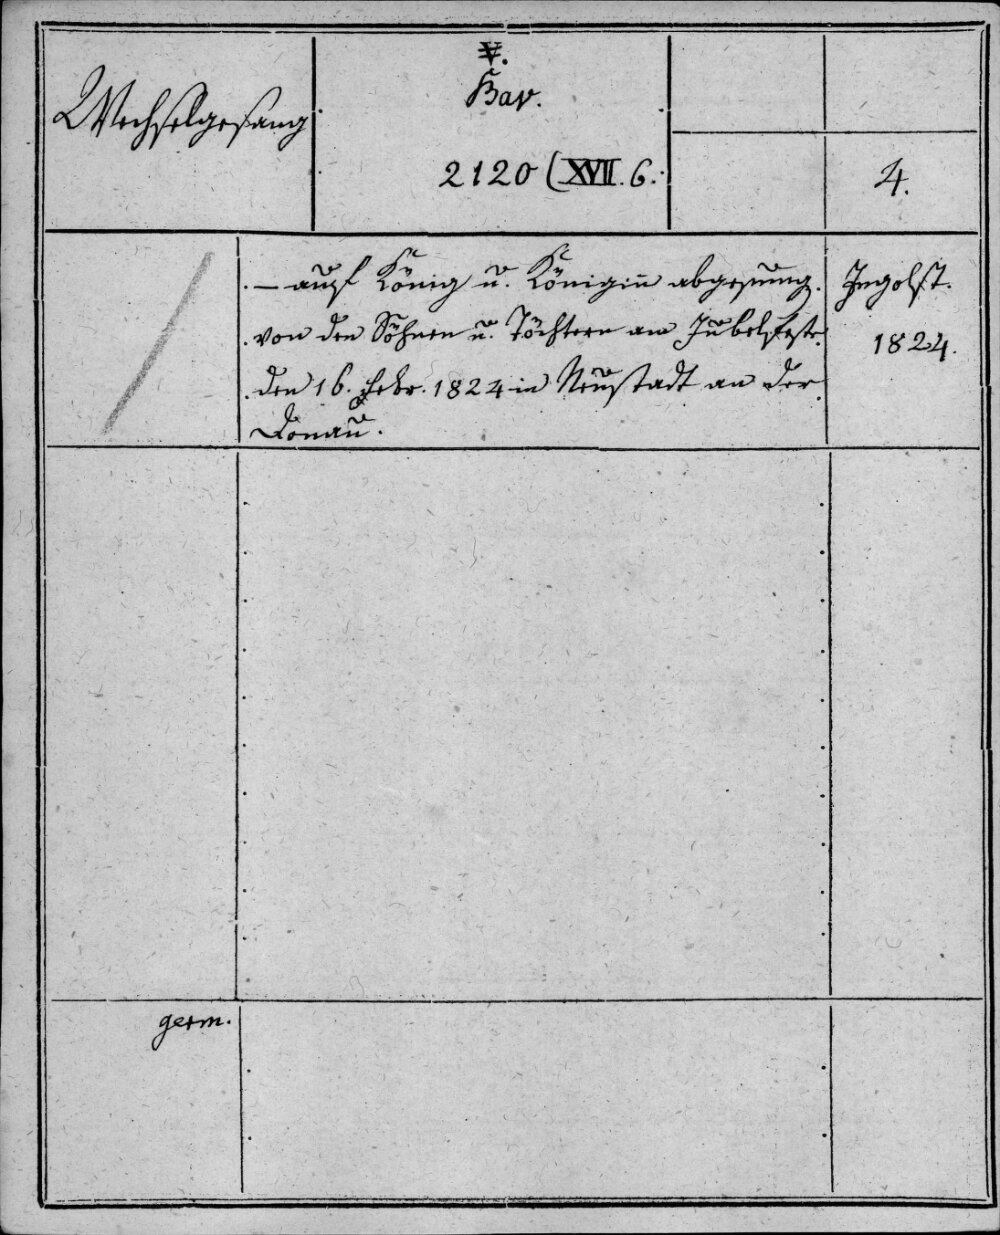 Wechselgesang
V.
Bav.
2120 (XVII. 6.
4.
— auf König u. Königin abgesung.
von den Söhnen u. Töchtern am Jubelfeste
den 16. Febr. 1824 in Neustadt an der
Donau.
Ingolst.
1824.
germ.